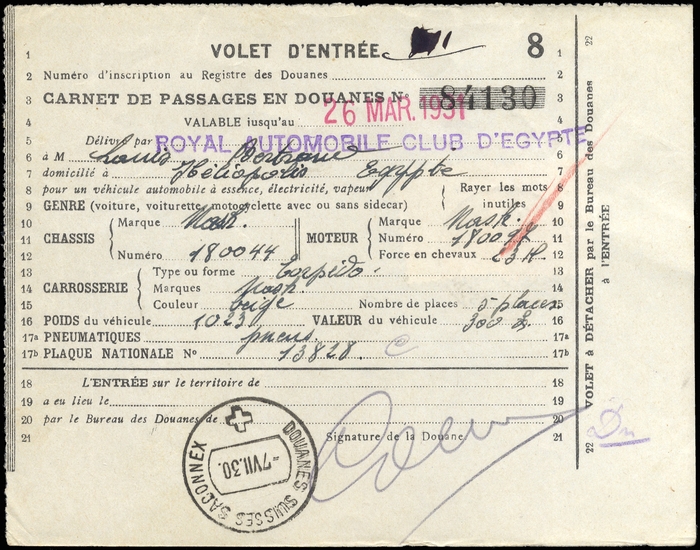 1 VOLET D'ENTRÉE 8 1
2 Numéro d'inscription au Registre des Douanes 2
3 CARNET DE PASSAGES EN DOUANES N° 84130 3
4 VALABLE jusqu'au 26 MAR. 1931 4
5 Délivré par ROYAL AUTOMOBILE CLUB D'EGYPTE
6 à M Louis 6
7 domicilié à Héliopolis Egypte 7
8 pour un véhicule automobile à essence, électricité, vapeur Rayer les mots inutiles 8
9 GENRE (voiture, voiturette, motocyclette avec ou sans sidecar) 9
10 Marque Nash Marque Nash 10
11 CHASSIS MOTEUR Numéro 11
12 Numéro 180044 Force en chevaux 23 H 12
13 Type ou forme torpédo 13
14 CARROSSERIE Marques Nash 14
15 Couleur beige Nombre de places 5 places 15
16 POIDS du véhicule 1023 VALEUR du véhicule 300 16
17a PNEUMATIQUES pneus 17a
17b PLAQUE NATIONALE N° 13828 C 17b
18 L'ENTRÉE sur le territoire de 18
19 a eu lieu le 19
20 par le Bureau des Douanes de 20
21 Signature de la Douane 21
DOUANES SUISSES SACONNEX
-7.VII.30.
22 VOLET A DÉTACHER par le Bureau des Douanes 22
à l'ENTRÉE